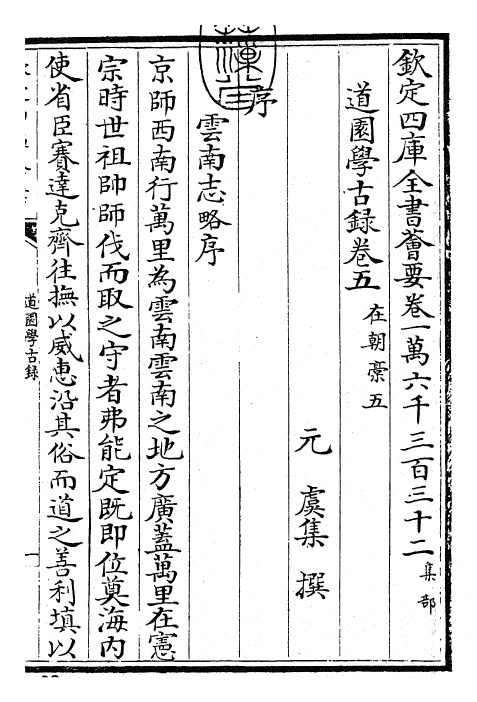 欽定四庫全書薈要卷一萬六千三百三十二 集部
道園學古録卷五 在朝稾五
元 虞集 撰
序
雲南志略序
京師西南行萬里為雲南雲南之地方廣蓋萬里在憲
宗時世祖帥師伐而取之守者弗能定既即位奠海内
使省臣賽達克齊往撫以威惠沿其俗而道之善利填以
道園學古録
一